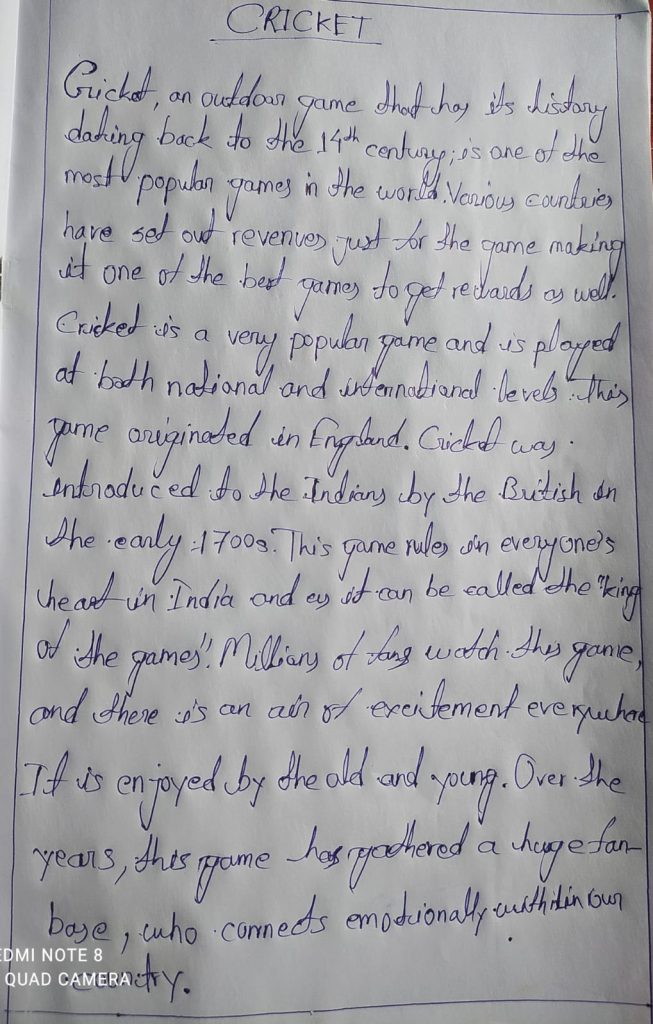 CRICKET
Cricket, an outdoor game that has its history
dating back to the 14th century; is one of the
most popular games in the world. Various countries
have set out revenues just for the game making
it one of the best games to get rewards as well.
Cricket is a very popular game and is played
at both national and international levels. This
game originated in England. Cricket was
introduced to the Indians by the British in
the early 1700s. This game rules in everyone's
heart in India and as it can be called the "king
of the games". Millians of fans watch this game,
and there is an air of excitement everywhere
It is enjoyed by the old and young. Over the
years, this game has gathered a huge fan-
base, who connects emotionally with it in our
country.
REDMI NOTE 8
QUAD CAMERA